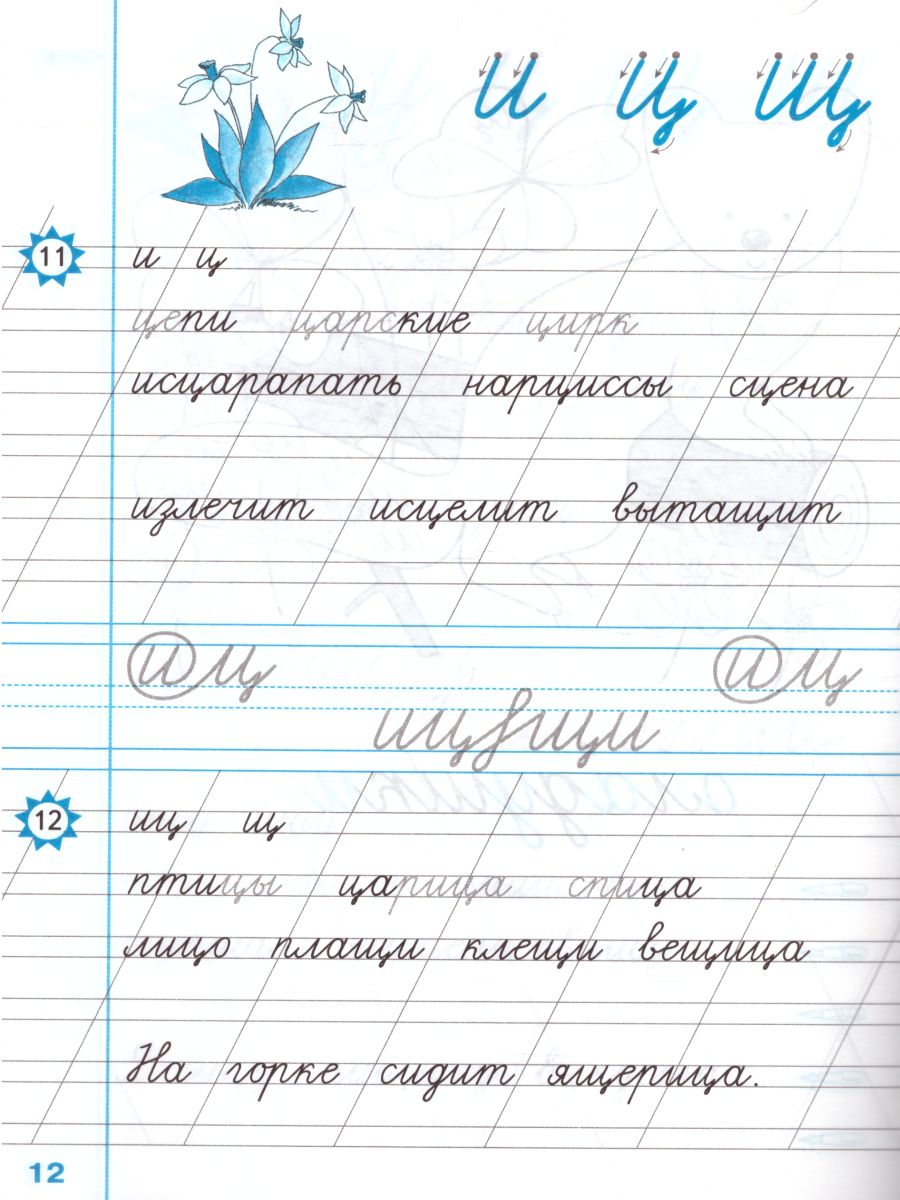 И Ц Щ
11
и ц
цепи царские цирк
исцарапать нарциссы сцена
излечит исцелит вытащит
и ц и ц
12
иц щ
птицы царица спица
лицо плащи клещи вещица
На горке сидит ящерица.
12